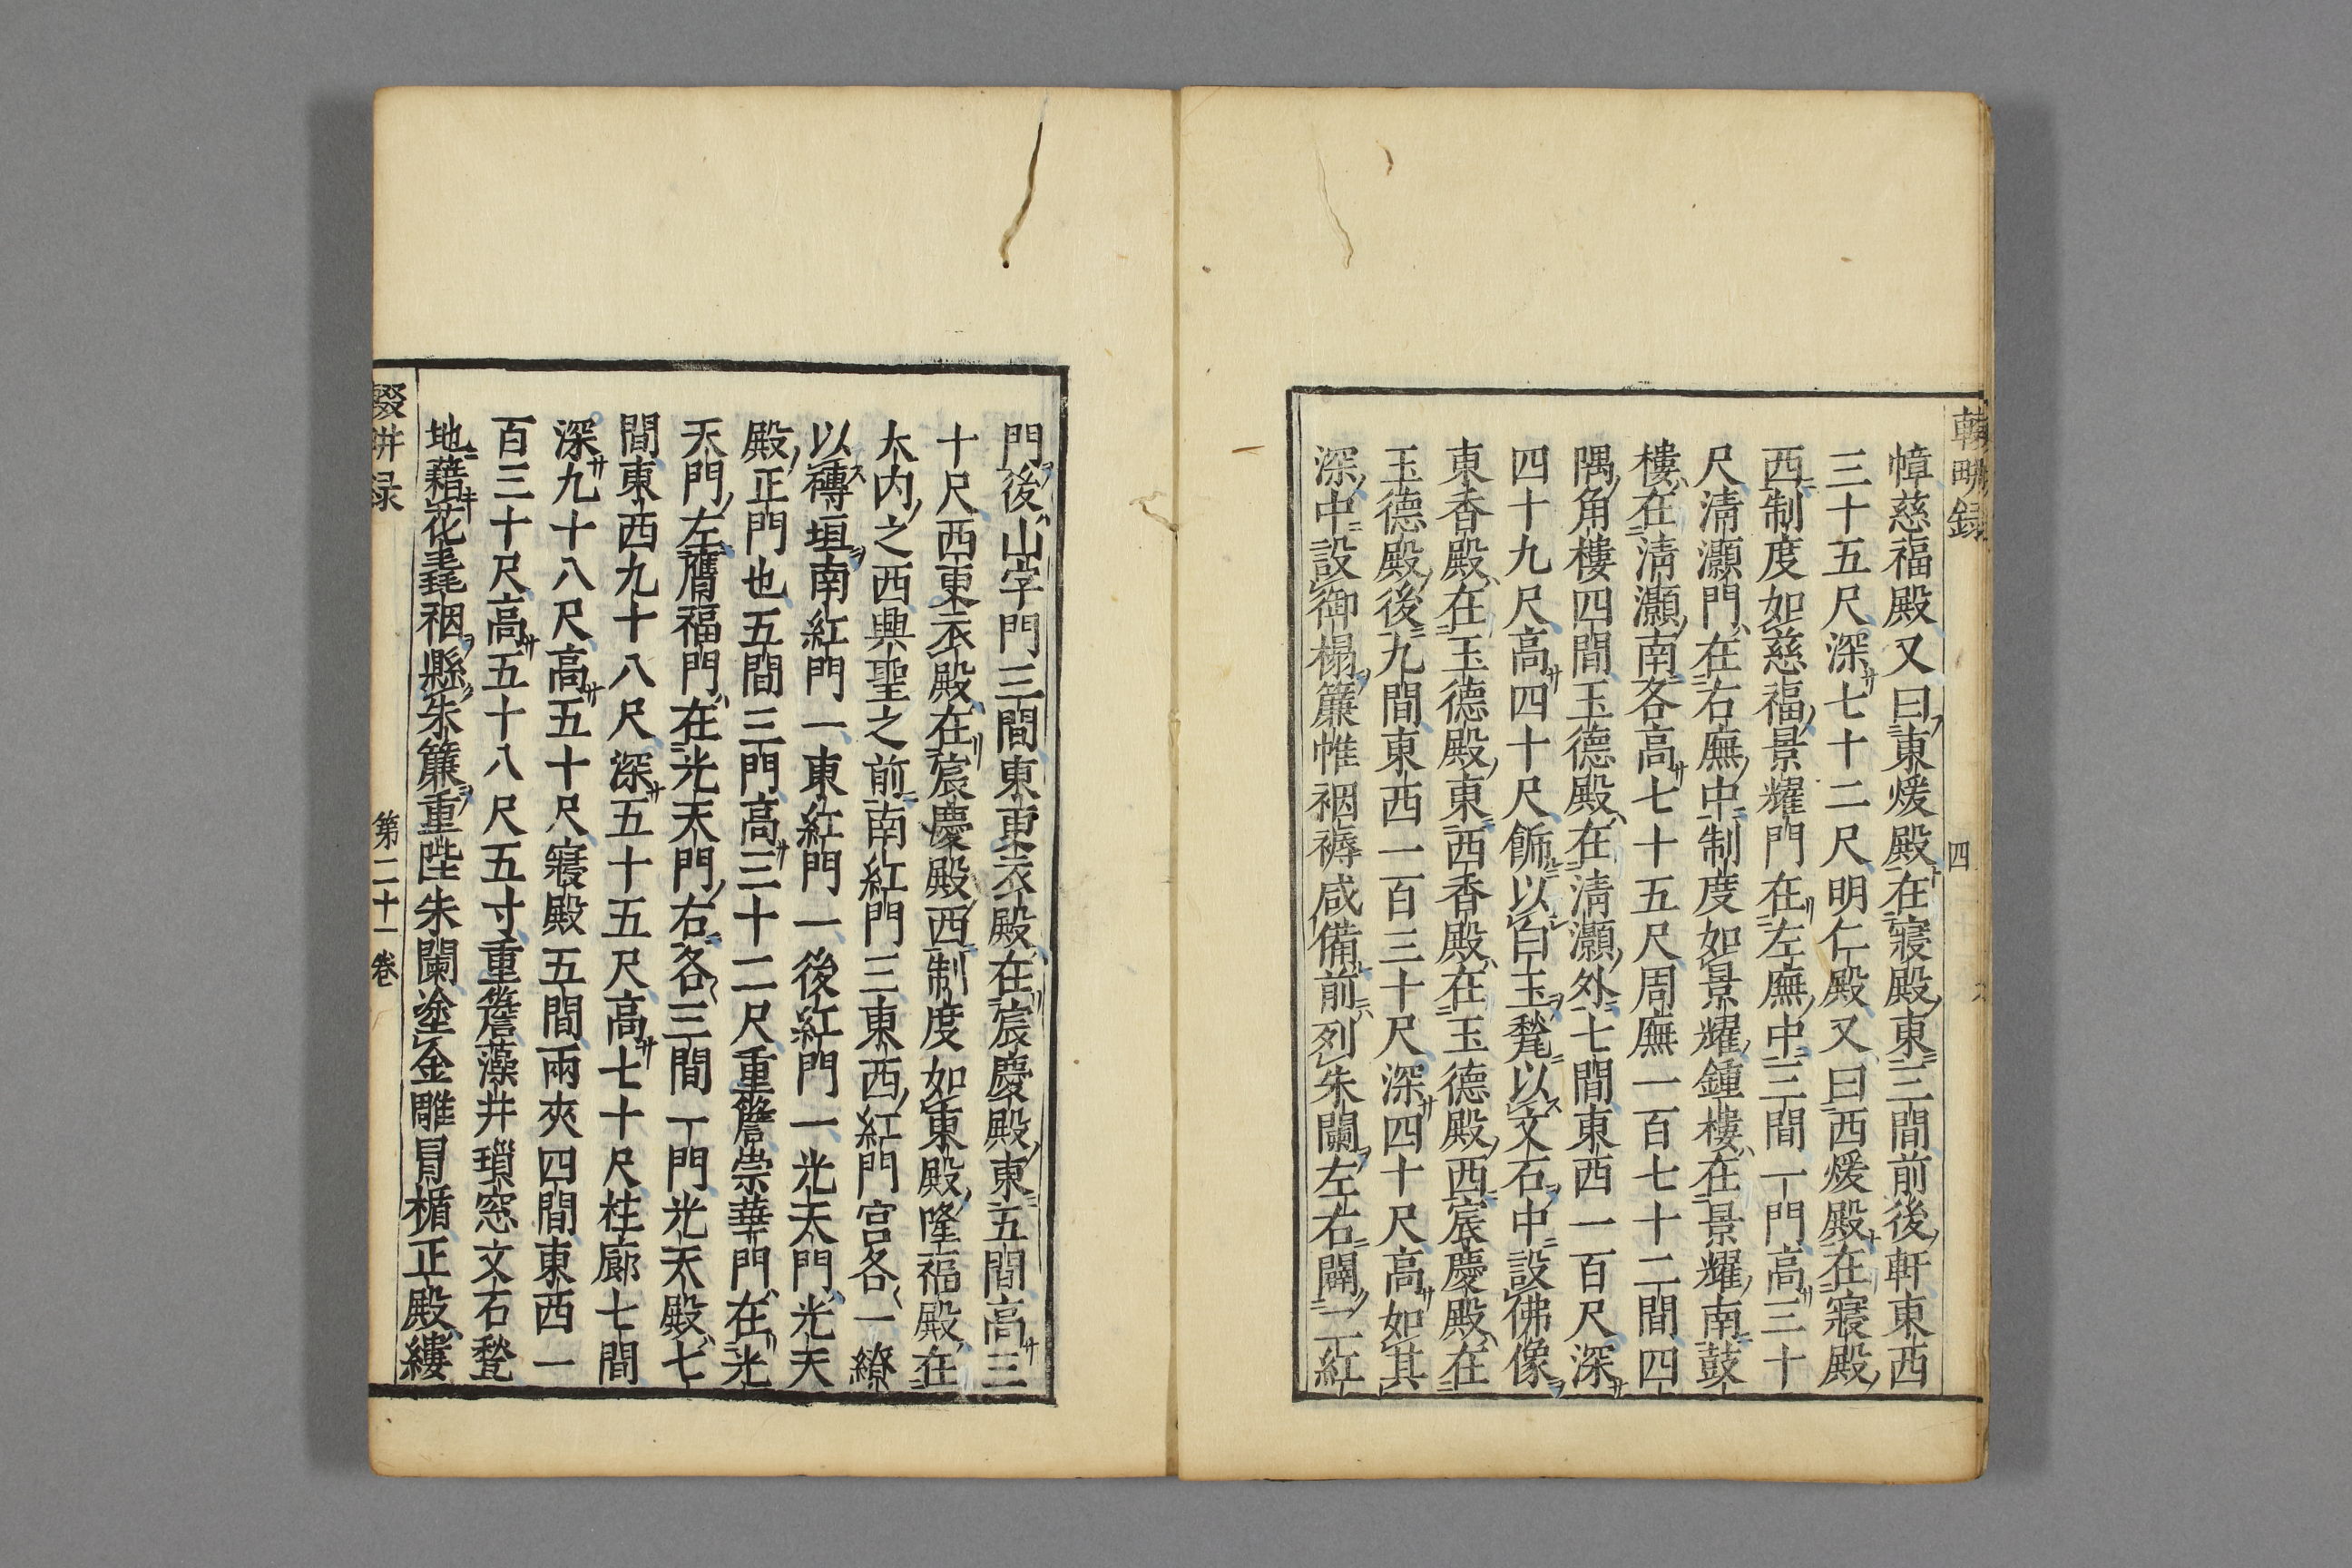 輟畊録
四
幛慈福殿又曰東煖殿在寢殿東三間前後軒東西
三十五尺深七十二尺明仁殿又曰西煖殿在寢殿
西制度如慈福景耀門在左廡中三間一門高三十
尺清灝門在右廡中制度如景耀鍾樓在景耀南鼓
樓在清灝南各高七十五尺周廡一百七十二間四
隅角樓四間玉德殿在清灝外七間東西一百尺深
四十九尺高四十尺飾以白玉甃以文石中設佛像
東香殿在玉德殿東西香殿在玉德殿西宸慶殿在
玉德殿後九間東西一百三十尺深四十尺高如其
深中設御榻簾帷裀褥咸備前列朱闌左右闢二紅
門後山字門三間東更衣殿在宸慶殿東五間高三
十尺西更衣殿在宸慶殿西制度如東殿隆福殿在
大内之西興聖之前南紅門三東西紅門宮各一繚
以磚垣南紅門一東紅門一後紅門一光天門光天
殿正門也五間三門高三十二尺重簷崇華門在光
天門左膺福門在光天門右各三間一門光天殿七
間東西九十八尺深五十五尺高七十尺柱廊七間
深九十八尺高五十尺寢殿五間兩夾四間東西一
百三十尺高五十八尺五寸重簷藻井瑣窓文石甃
地藉花毳裀縣朱簾重陛朱闌塗金雕冒楯正殿縷
輟畊录
第二十一卷